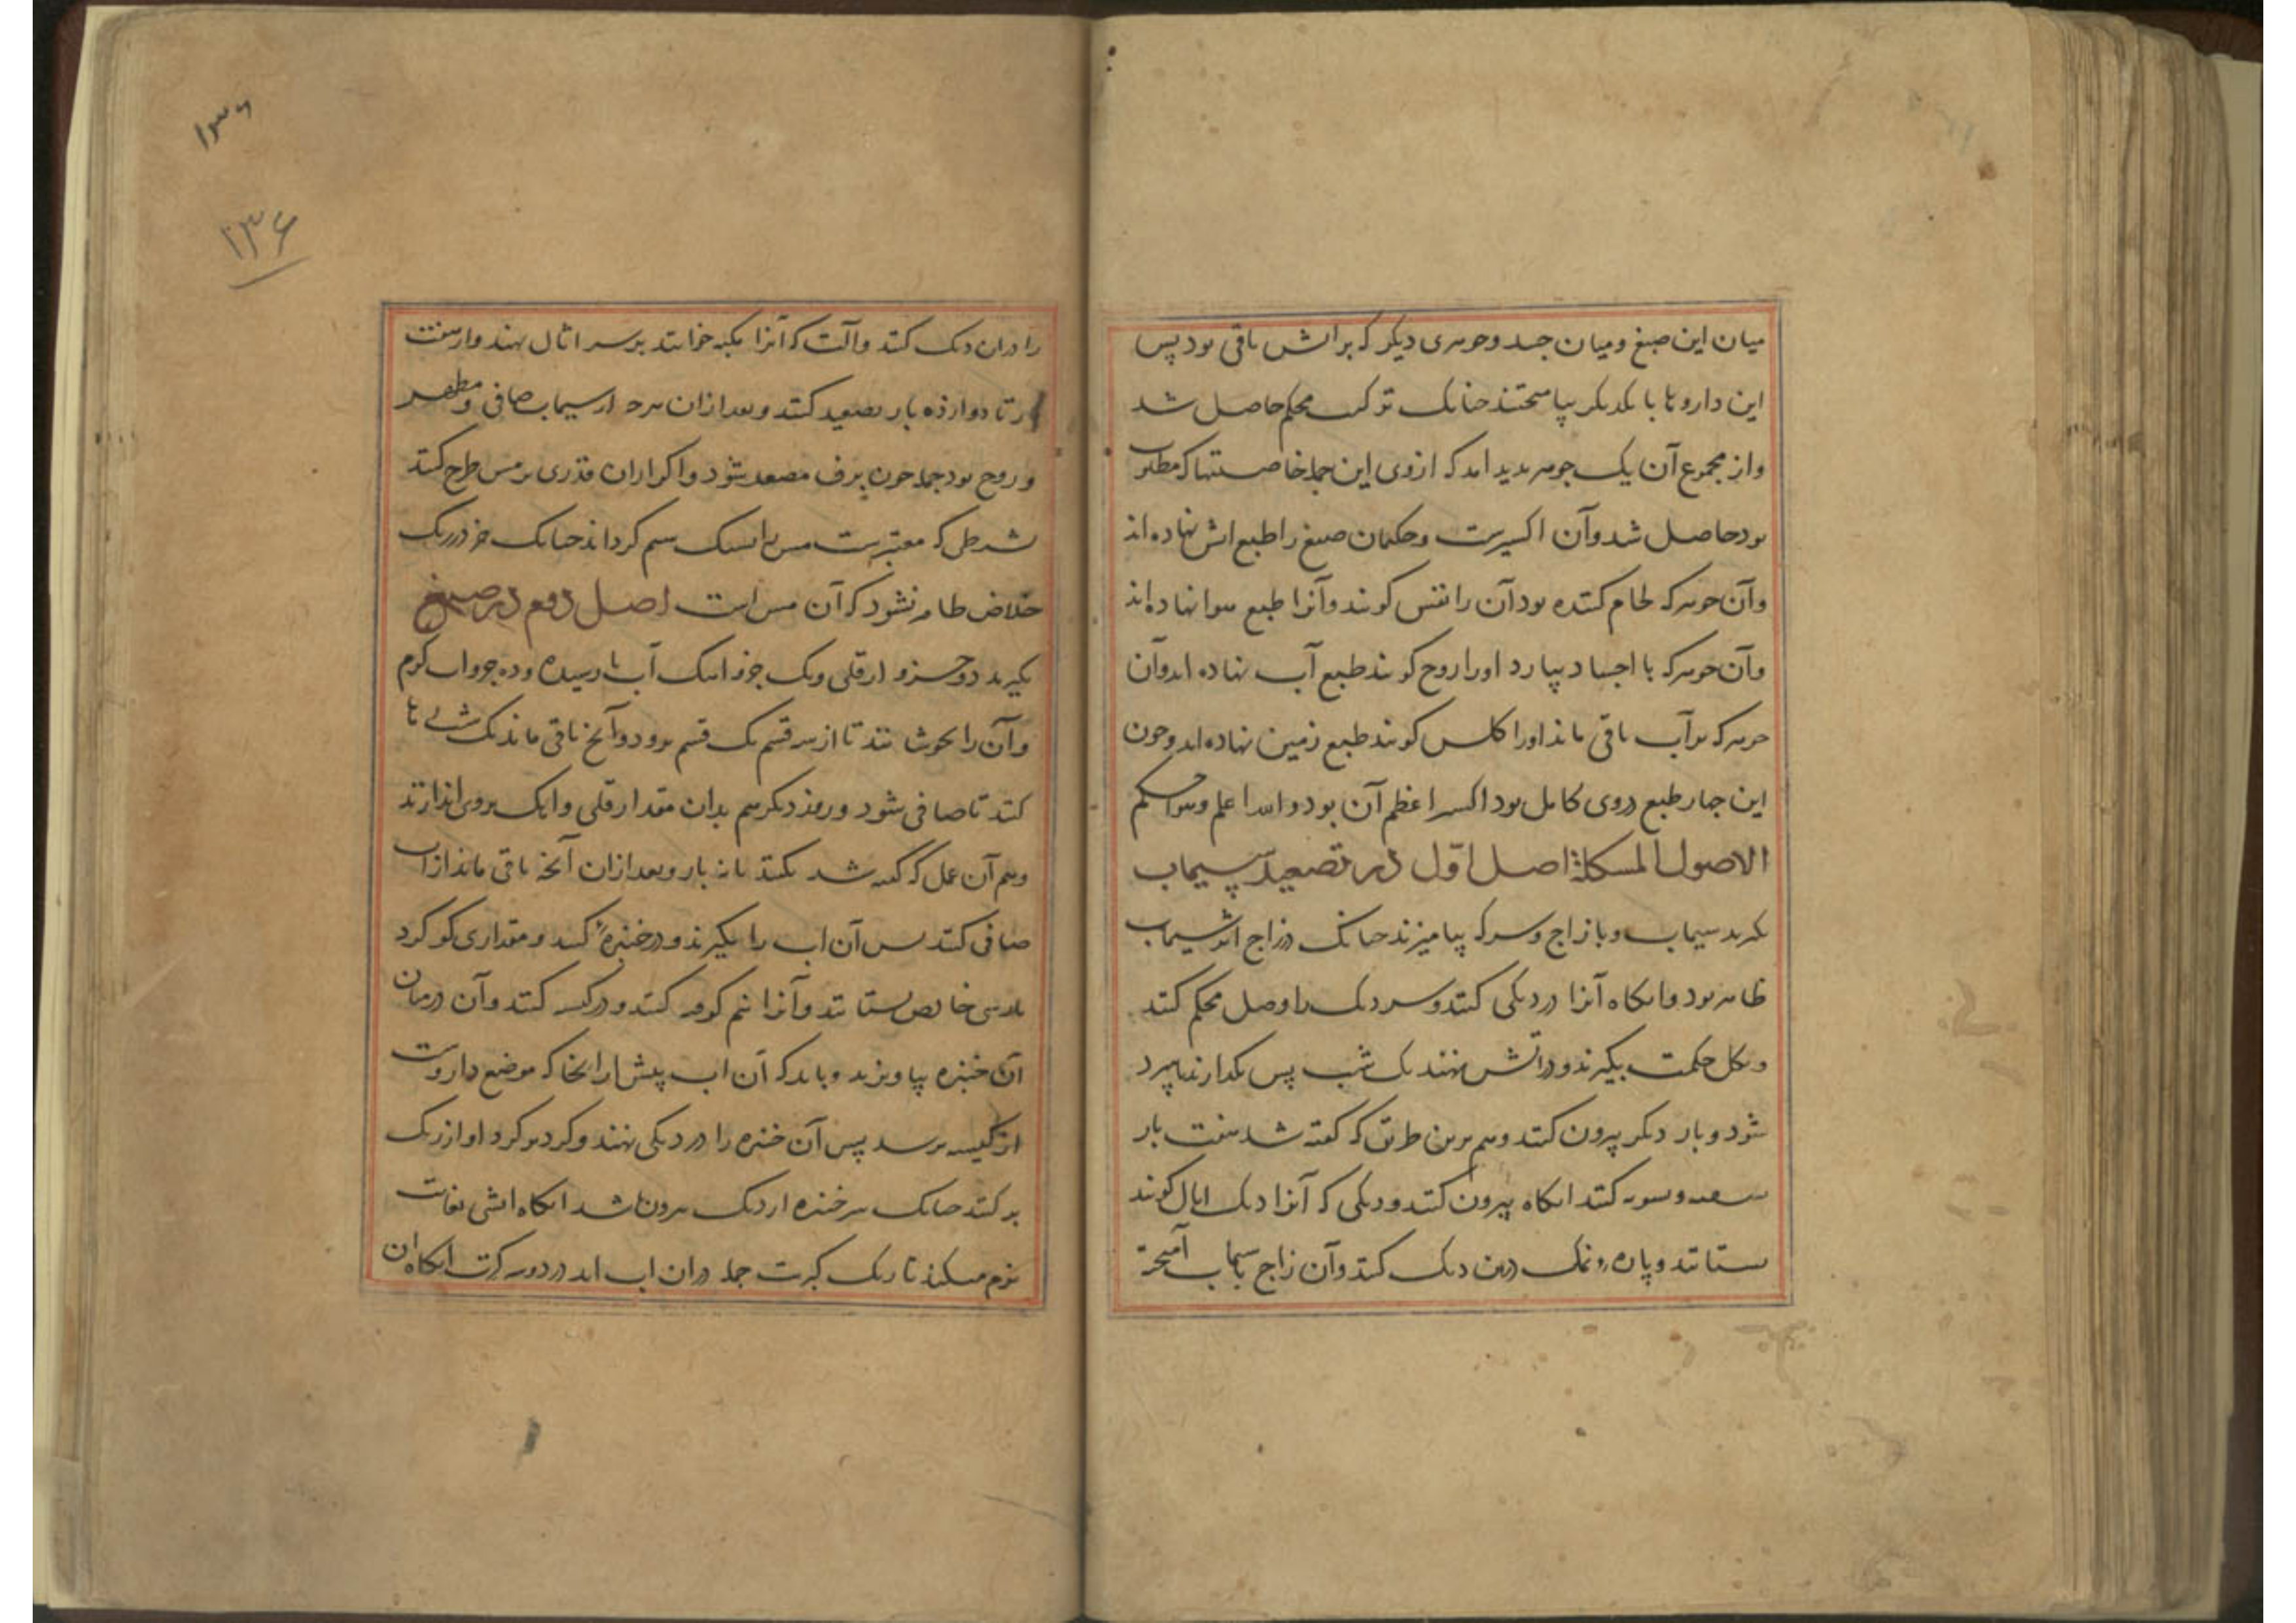 میان این صبغ و میان جسد و جوهری دیگر که بر آتش باقی بود پس
این داروها با یکدیگر بیامیختند چنانک ترکیب محکم حاصل شد
و از مجموع آن یک جوهر بدید امد که ازوی این جمله خاصیتها که مطلوب
بود حاصل شد و آن اکسیرست و حکیمان صبغ را طبع اتش نهاده اند
و آن جوهر که لحام کننده بود آن را نفس کویند و آنرا طبع هوا نهاده اند
و آن جوهر که با اجساد بیارد اورا روح کویند طبع آب نهاده اند و آن
جوهر که بر آب باقی ماند اورا کلس کویند طبع زمین نهاده اند و چون
این چهار طبع دروی کامل بود اکسیر اعظم آن بود والله اعلم و احکم
الاصول المشکلة اصل اوّل در تصعید سیماب
بکیرند سیماب و با زاج و سرکه بیامیزند چنانک در زاج اثر سیماب
ظاهر بود و انکاه آنرا در دیکی کنند و سر دیک با وصل محکم کنند
و بکل حکمت بکیرند و در آتش نهند یک شب پس بکذارند تا سرد
شود و بار دیکر بیرون کنند و هم برین طریق که کفته شد هفت بار
تسقیه و تشویه کنند انکاه بیرون کنند و دیکی که آنرا دیک اثال کویند
بستانند و پاره نمک درین دیک کنند و آن زاج با سیماب آمیخته
۱۳۶
۱۳۶
را در ان دیک کنند و آلت که آنرا مکبه خوانند بر سر اثال نهند و از هفت
بار تا دوازده بار تصعید کنند و بعد ازان هرچه از سیماب صافی و مطهر
و روح بود جمله چون برف مصعد شود و اکر ازان قدری بر مس طرح کنند
بشرطی که معتبرست مس را سیم کرداند چنانک جز در
خلاص ظاهر نشود که آن مس است اصل دوم در صبغ
بکیرند دو جزو از قلی و یک جزو اهک آب نارسیده و ده جزو اب کرم
و آن را بجوشانند تا از سه قسم یک قسم برود و آنچ باقی ماند یک شب رها
کنند تا صافی شود و روز دیکر هم بدان مقدار قلی و اهک بروی اندازند
و هم آن عمل که کفته شد بکنند تا نه بار و بعد ازان آنچه باقی ماند ازاب
صافی کنند پس آن اب را بکیرند و در خنبره کنند و مقداری کوکرد
پارسی خالص بستانند و آنرا نیم کوفته کنند و در کیسه کنند و آن در میان
آن خنبره بیاویزند و باید که آن اب بیش از انجا که موضع داروست
از کیسه نرسد پس آن خنبره را در دیکی نهند و کرد بر کرد او از ریک
بر کنند چنانک سر خنبره از دیک بیرون باشد انکاه اتشی بغایت
نرم میکنند تا رنک کبریت جمله دران اب اید در دو سه کرت انکاه ان